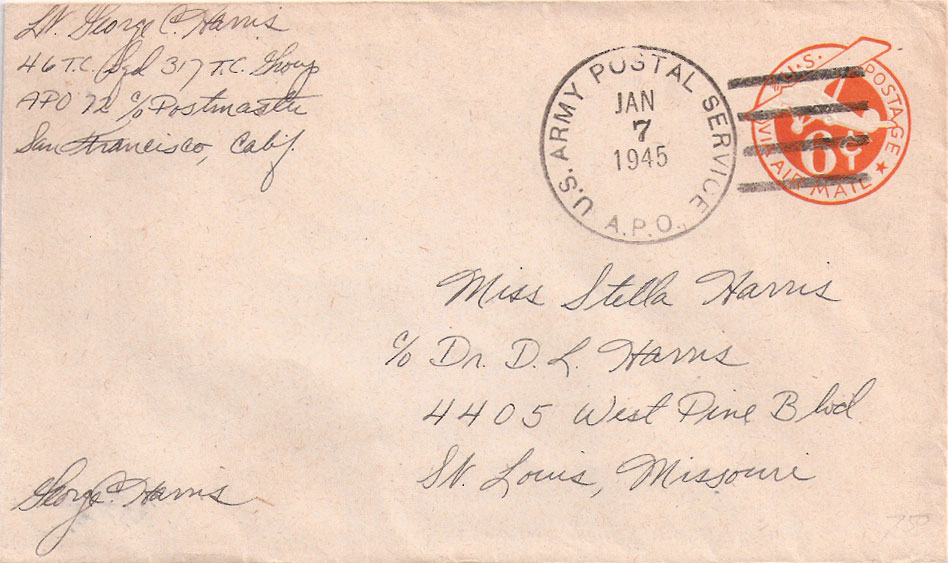 Lt. George C. Harris
46 T.C. Sqd 317 T.C. Group
APO 72 c/o Postmaster
San Francisco, Calif.
U.S. ARMY POSTAL SERVICE
JAN
7
1945
A.P.O.
U.S. POSTAGE
6¢
VIA AIR MAIL
Miss Stella Harris
c/o Dr. D. L. Harris
4405 West Pine Blvd
St. Louis, Missouri
George C. Harris
750